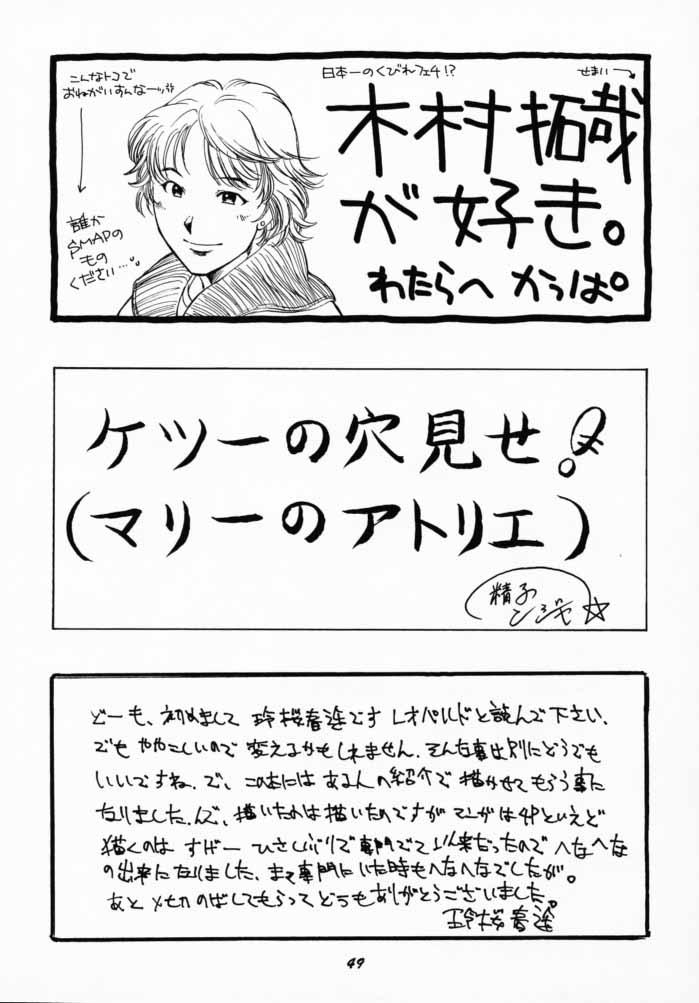 こんなトコで
おねがいすんなーッ!!
誰か
SMAPの
もの
ください…。
日本一のくびれフェチ!?
せまい→
木村拓哉
が好き。
わたらへ かっぱ。
ケツーの穴見せ!
(マリーのアトリエ)
精子
ンジャ☆
どーも、初めまして 玲桜春逢です レオパルドと読んで下さい、
でも ややこしいので 変えるかもしれません、そんな事は別にどうでも
いいですね、で、この本には ある人の紹介で 描かせてもらう事に
なりました、んで、描いたのは描いたのですが マンガは4Pといえど
描くのは すげー ひさしぶりで専門でて以来だったので へなへな
の出来になりました、まて専門にいた時もへなへなでしたが。
あと〆切のばしてもらって どうもありがとうございました。
玲桜春逢
49